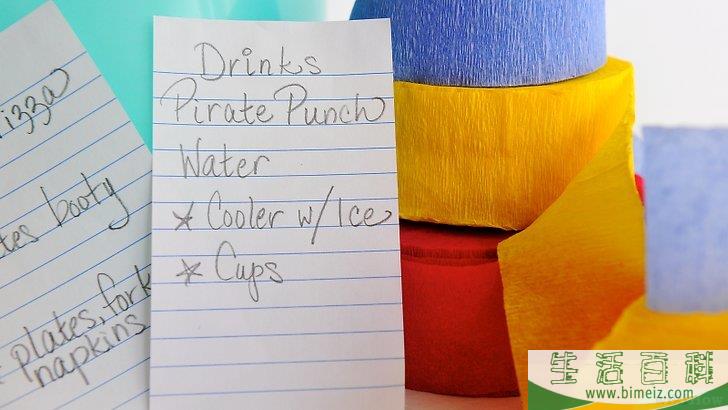 izza
tes booty
plates, fork
napkins
Drinks
Pirate Punch
Water
* Cooler w/ Ice
* Cups
生活百科
www.bimeiz.com